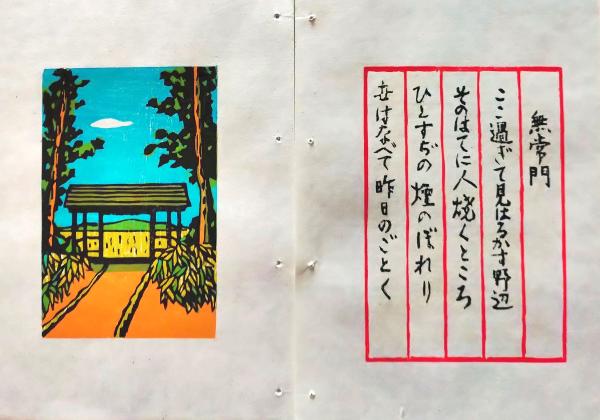 無常門
ここ過ぎて見はるかす野辺
そのはてに人焼くところ
ひとすぢの煙のぼれり
世はなべて昨日のごとく